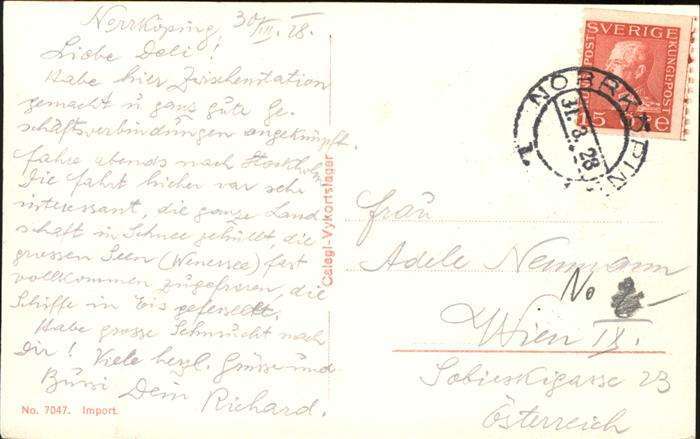 Norrköping, 30/III. 28.
Liebe Deli!
Habe hier Zwischenstation
gemacht u ganz gute Ge-
schäftsverbindungen angeknüpft.
fahre abends nach Stockholm
Die fahrt hieher war sehr
interessant, die ganze Land
schaft in Schnee gehüllt, die
grossen Seen (Wenersee) fast
vollkommen zugefroren, die
Schiffe in Eis gefesselt.
Habe grosse Sehnsucht nach
Dir! Viele herzl. Grüsse und
Bussi Dein Richard.
No. 7047. Import.
Calegi-Vykortslager
SVERIGE
POST
KUNGL.POST
15 ÖRE
NORRKÖPING
31.3.28
1.
Frau
Adele Neumann
No
Wien IX.
Sobieskigasse 23
Österreich